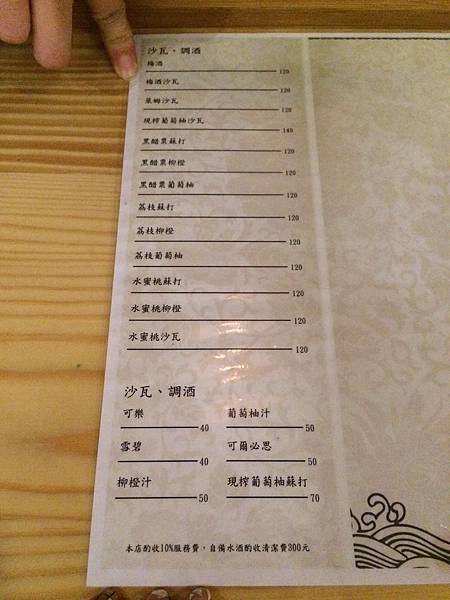 沙瓦、調酒
梅酒 120
梅酒沙瓦 120
萊姆沙瓦 120
現榨葡萄柚沙瓦 140
黑醋栗蘇打 120
黑醋栗柳橙 120
黑醋栗葡萄柚 120
荔枝蘇打 120
荔枝柳橙 120
荔枝葡萄柚 120
水蜜桃蘇打 120
水蜜桃柳橙 120
水蜜桃沙瓦 120
沙瓦、調酒
可樂 40 葡萄柚汁 50
雪碧 40 可爾必思 50
柳橙汁 50 現榨葡萄柚蘇打 70
本店酌收10%服務費，自備水酒酌收清潔費300元